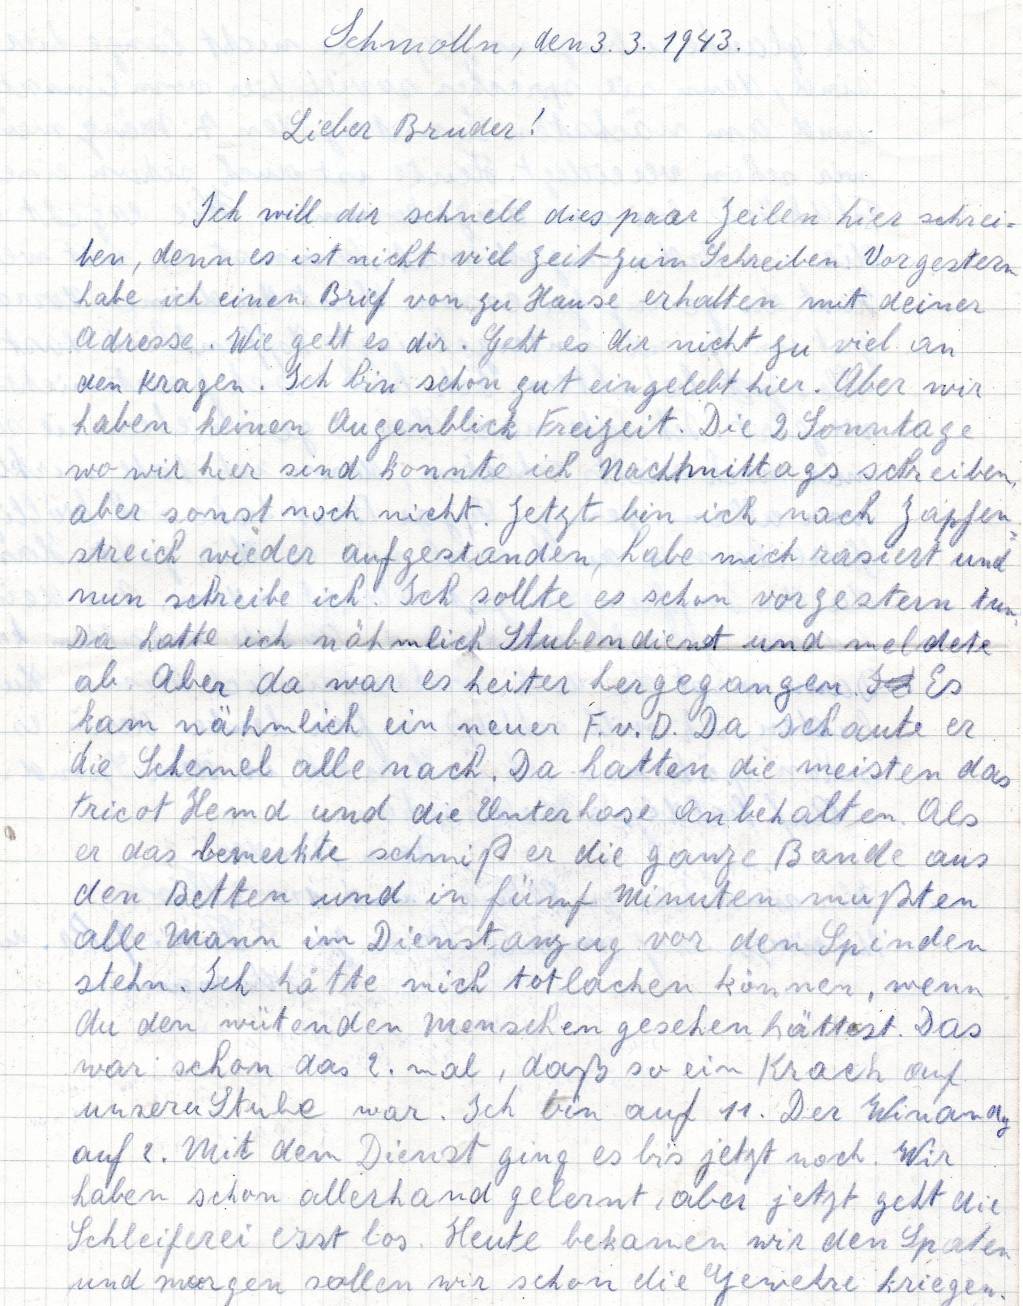 Schmolln, den 3. 3. 1943.
Lieber Bruder!
Ich will dir schnell dies paar Zeilen hier schrei-
ben, denn es ist nicht viel Zeit zum Schreiben. Vorgestern
habe ich einen Brief von zu Hause erhalten mit deiner
Adresse. Wie geht es dir. Geht es dir nicht zu viel an
den Kragen. Ich bin schon gut eingelebt hier. Aber wir
haben keinen Augenblick Freizeit. Die 2 Sonntage
wo wir hier sind konnte ich Nachmittags schreiben,
aber sonst noch nicht. Jetzt bin ich nach Zapfen-
streich wieder aufgestanden, habe mich rasiert und
nun schreibe ich. Ich sollte es schon vorgestern tun.
Da hatte ich nähmlich Stubendienst und meldete
ab. Aber da war es heiter hergegangen. Es
kam nähmlich ein neuer F.v.D. Da schaute er
die Schemel alle nach. Da hatten die meisten das
tricot Hemd und die Unterhose anbehalten. Als
er das bemerkte schmiß er die ganze Bande aus
den Betten und in fünf Minuten mußten
alle Mann im Dienstanzug vor den Spinden
stehn. Ich hätte mich totlachen können, wenn
du den wütenden Menschen gesehen hättest. Das
war schon das 2. mal, daß so ein Krach auf
unserer Stube war. Ich bin auf 11. Der Winandy
auf 2. Mit dem Dienst ging es bis jetzt noch. Wir
haben schon allerhand gelernt, aber jetzt geht die
Schleiferei erst los. Heute bekamen wir den Spaten
und morgen sollen wir schon die Gewehre kriegen.